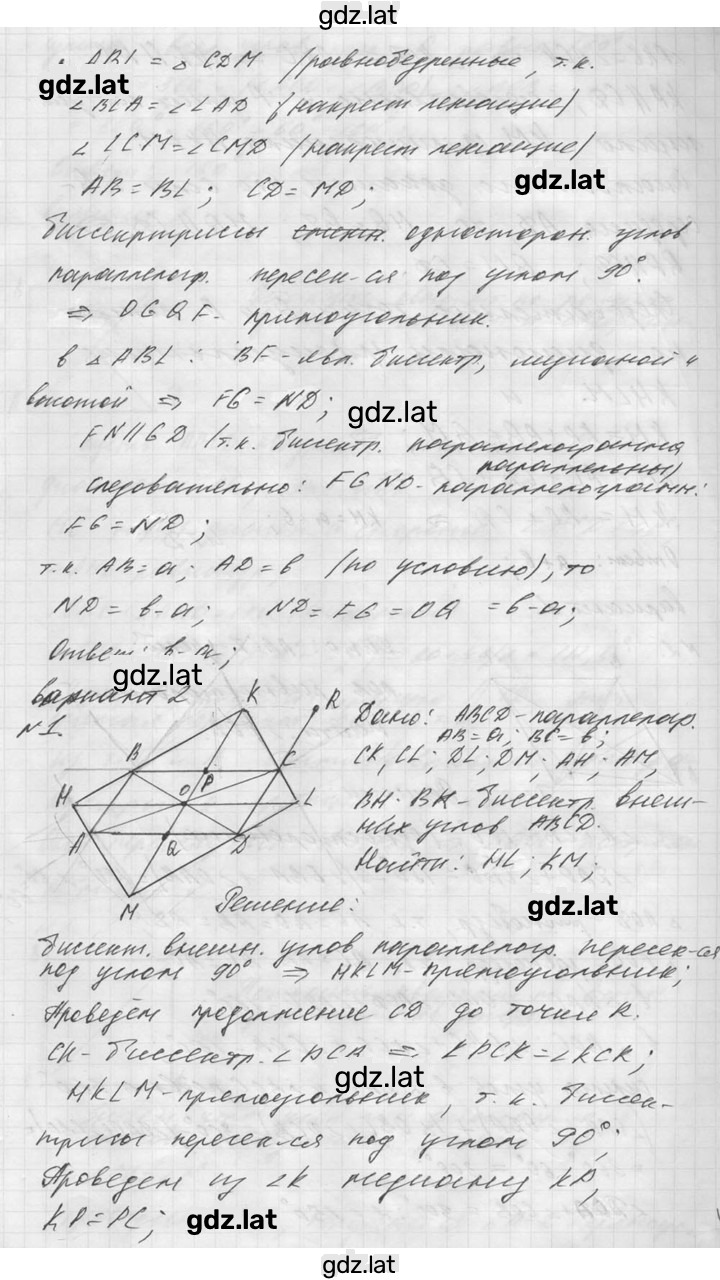 gdz.lat
∆ABL = ∆ CDM /равнобедренные, т.к.
gdz.lat
∠BLA = ∠LAD (накрест лежащие)
∠LCM = ∠CMD /накрест лежащие/
gdz.lat
AB = BL; CD = MD;
биссектриссы односторон. углов
параллелогр. пересек-ся под углом 90°.
⇒ OGQF - прямоугольник.
в ∆ABL: BF - явл. биссектр, медианой и
высотой ⇒ FG = ND;
gdz.lat
FN || GD /т.к. биссектр. параллелограмма
параллельны)
следовательно: FGND - параллелограмм:
FG = ND;
т.к. AB = a; AD = b (по условию), то
ND = b-a; ND = FG = OQ = b-a;
Ответ: b-a;
gdz.lat
вариант 2
№1.
K
R
B
P
C
H
O
L
A
Q
D
M
Дано: ABCD - параллелогр.
AB = a; BC = b;
CK, CL; DL; DM; AH; AM,
BH. BK - биссектр. внеш-
них углов ABCD.
Найти: HL; KM;
gdz.lat
Решение:
биссект. внешн. углов параллелогр. пересек-ся
под углом 90° ⇒ HKLM - прямоугольник;
Проведём продолжение CD до точки R.
CK - биссектр. ⇒ ∠PCK = ∠KCR;
gdz.lat
HKLM - прямоугольник, т.к. биссек-
триссы пересек-ся под углом 90°;
Проведем из ∠K медиану KP,
KP = PC;
gdz.lat
gdz.lat